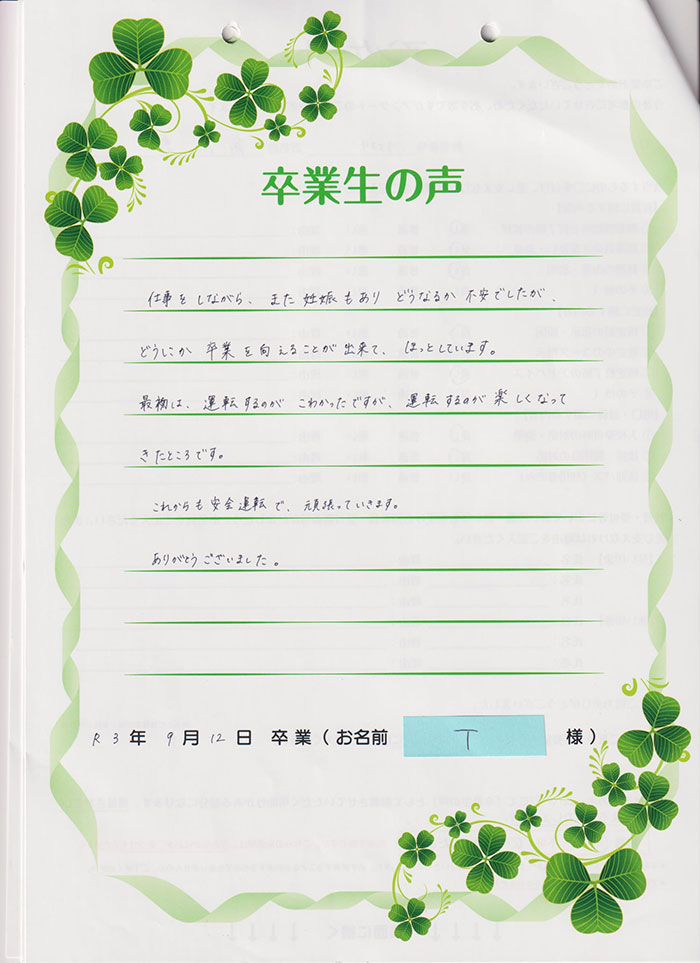 卒業生の声
仕事をしながら、また妊娠もあり どうなるか 不安でしたが、
どうにか 卒業を向えることが出来て、ほっとしています。
最初は、運転するのが こわかったですが、運転するのが楽しくなって
きたところです。
これからも安全運転で、頑張っていきます。
ありがとうございました。
R3年 9月12日 卒業(お名前 T 様)